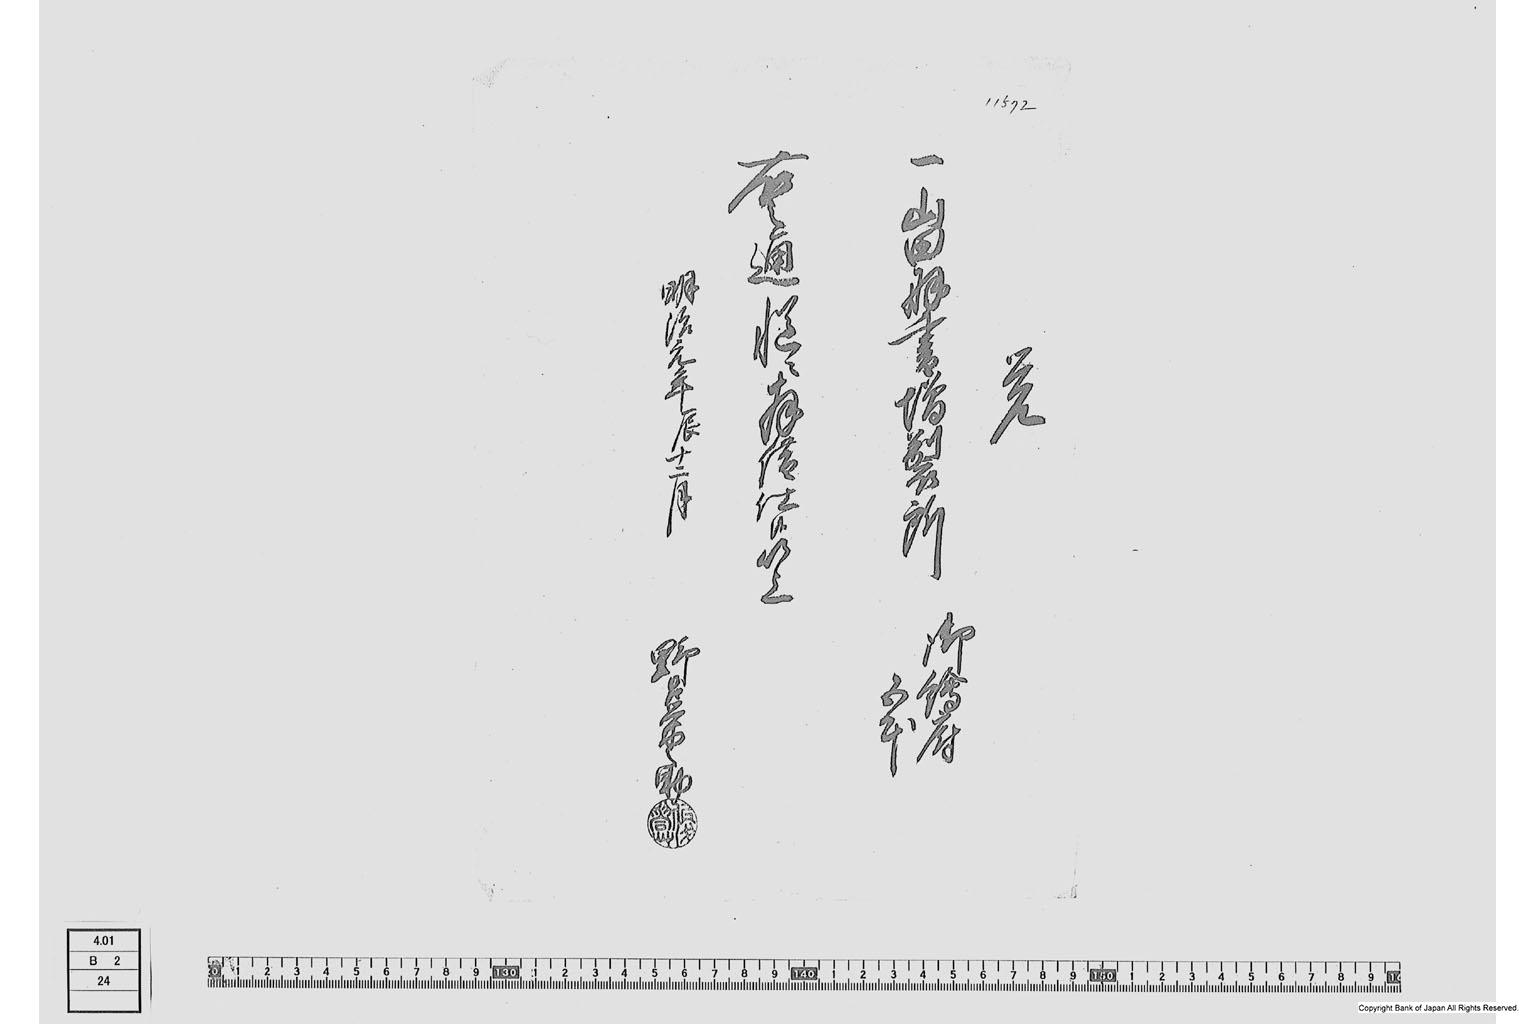 11572
覚
一山田羽書増製所
御繪府
五本
右之通慥ニ拝借仕候以上
明治元年辰十二月
野呂常之助
4.01
B 2
24
0 1 2 3 4 5 6 7 8 9 130 1 2 3 4 5 6 7 8 9 140 1 2 3 4 5 6 7 8 9 150 1 2 3 4 5 6 7 8 9
Copyright Bank of Japan All Rights Reserved.